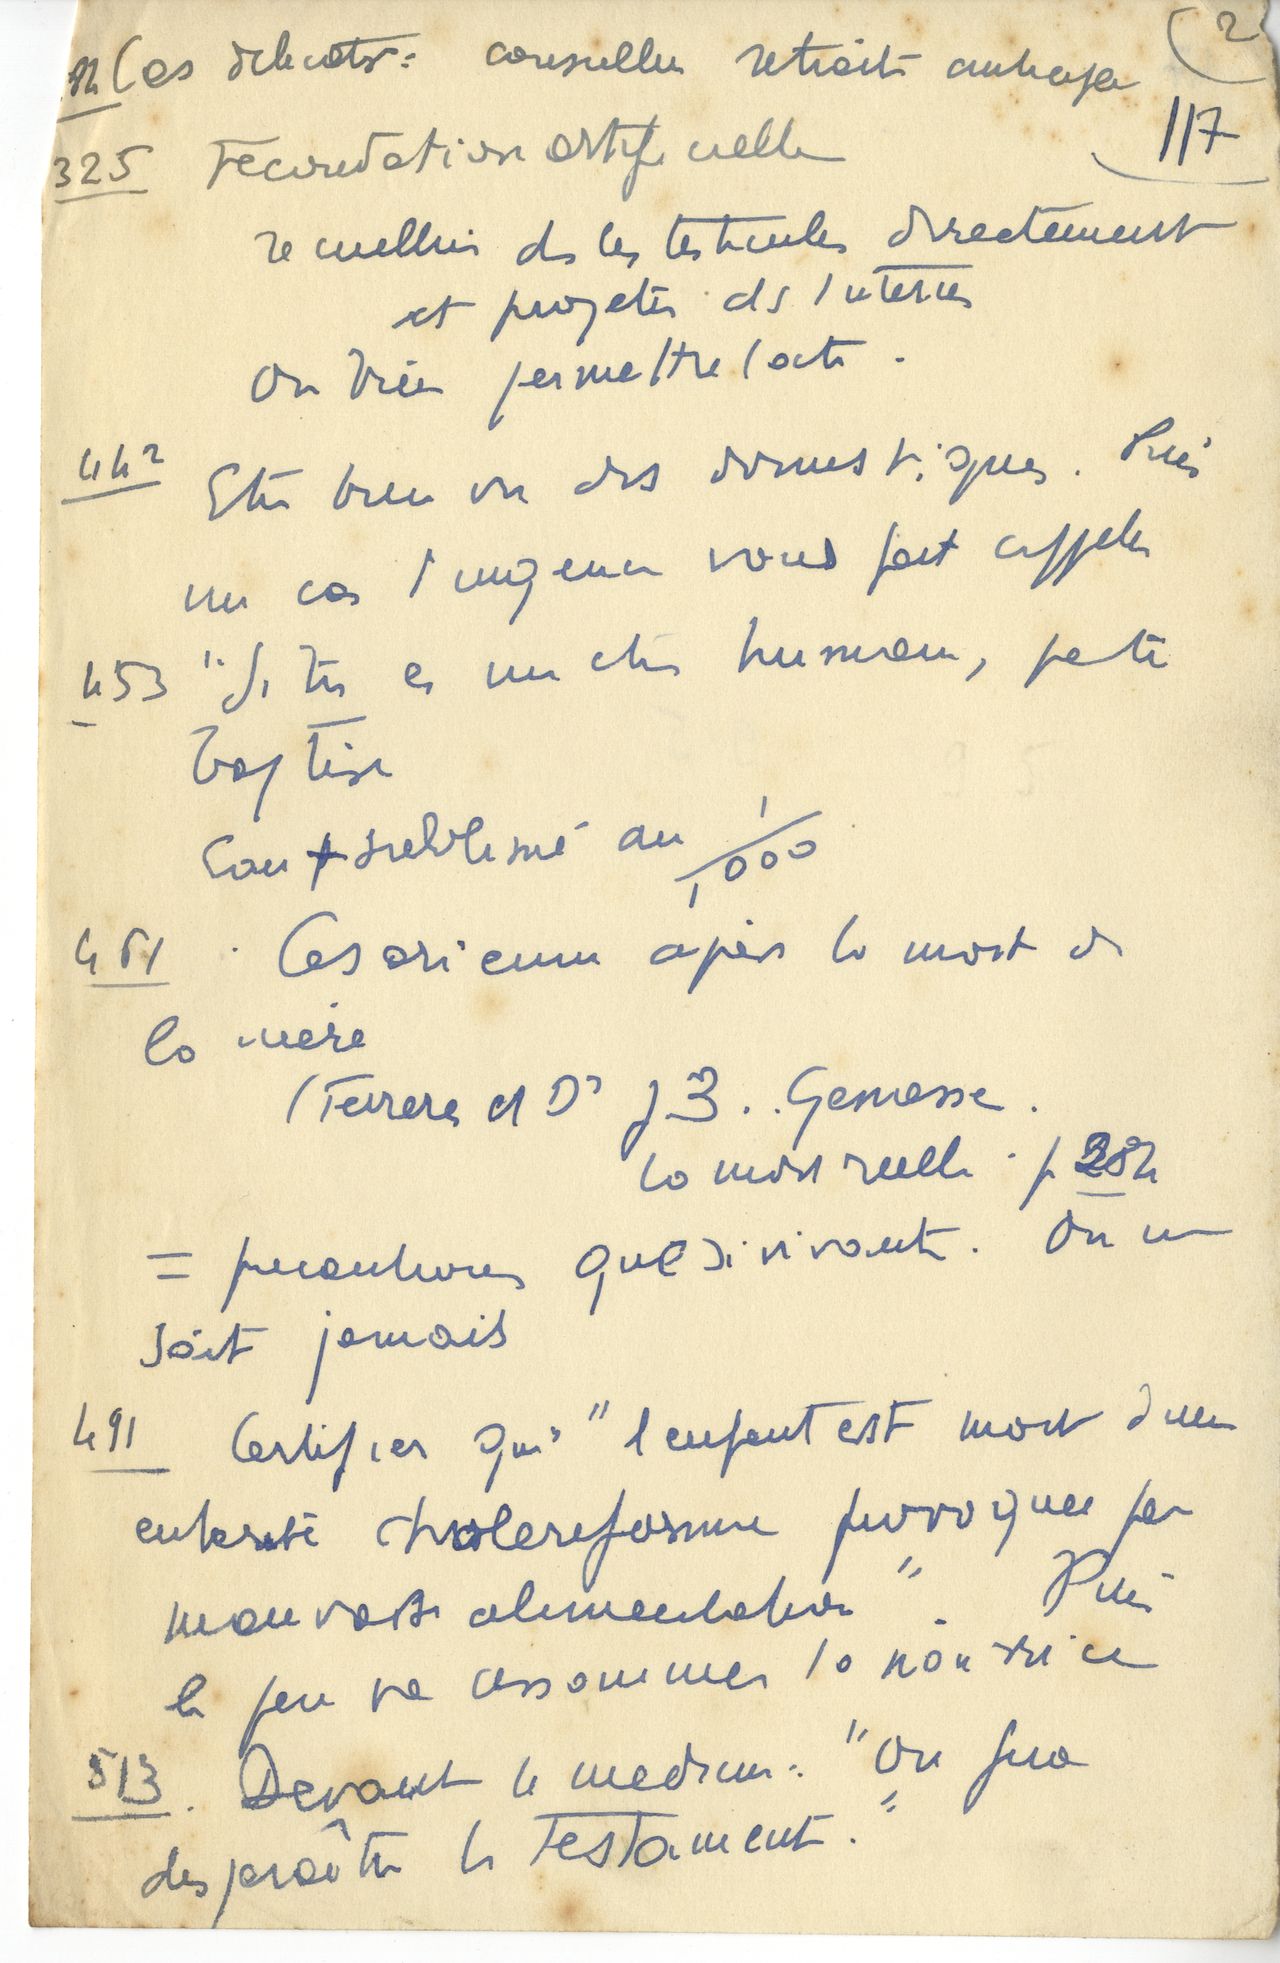 2
Cas délicats : conseiller retraite
117
325 Fécondation artificielle
recueillis ds les testicules directement
et projetés ds l'uterus
Ou bien permettre l'acte.
442 Etre bien vu des domestiques. Puis
un cas d'urgence vous fait appeler
453 "Si tu es un être humain, je te
baptise
Eau + sublimé au 1/1000
461 Cesarienne après la mort de
la mère
(Ferreres et Dr J B. Geniesse.
la mort reelle p 284
= precautions que si vivante. On ne
sait jamais
491 Certifier que "l'enfant est mort d'une
enterite cholereforme provoquee par
mauvaise alimentation". Puis
le pere va assommer la nourrice
513. Devant le medecin : "On fera
disparaître le testament."